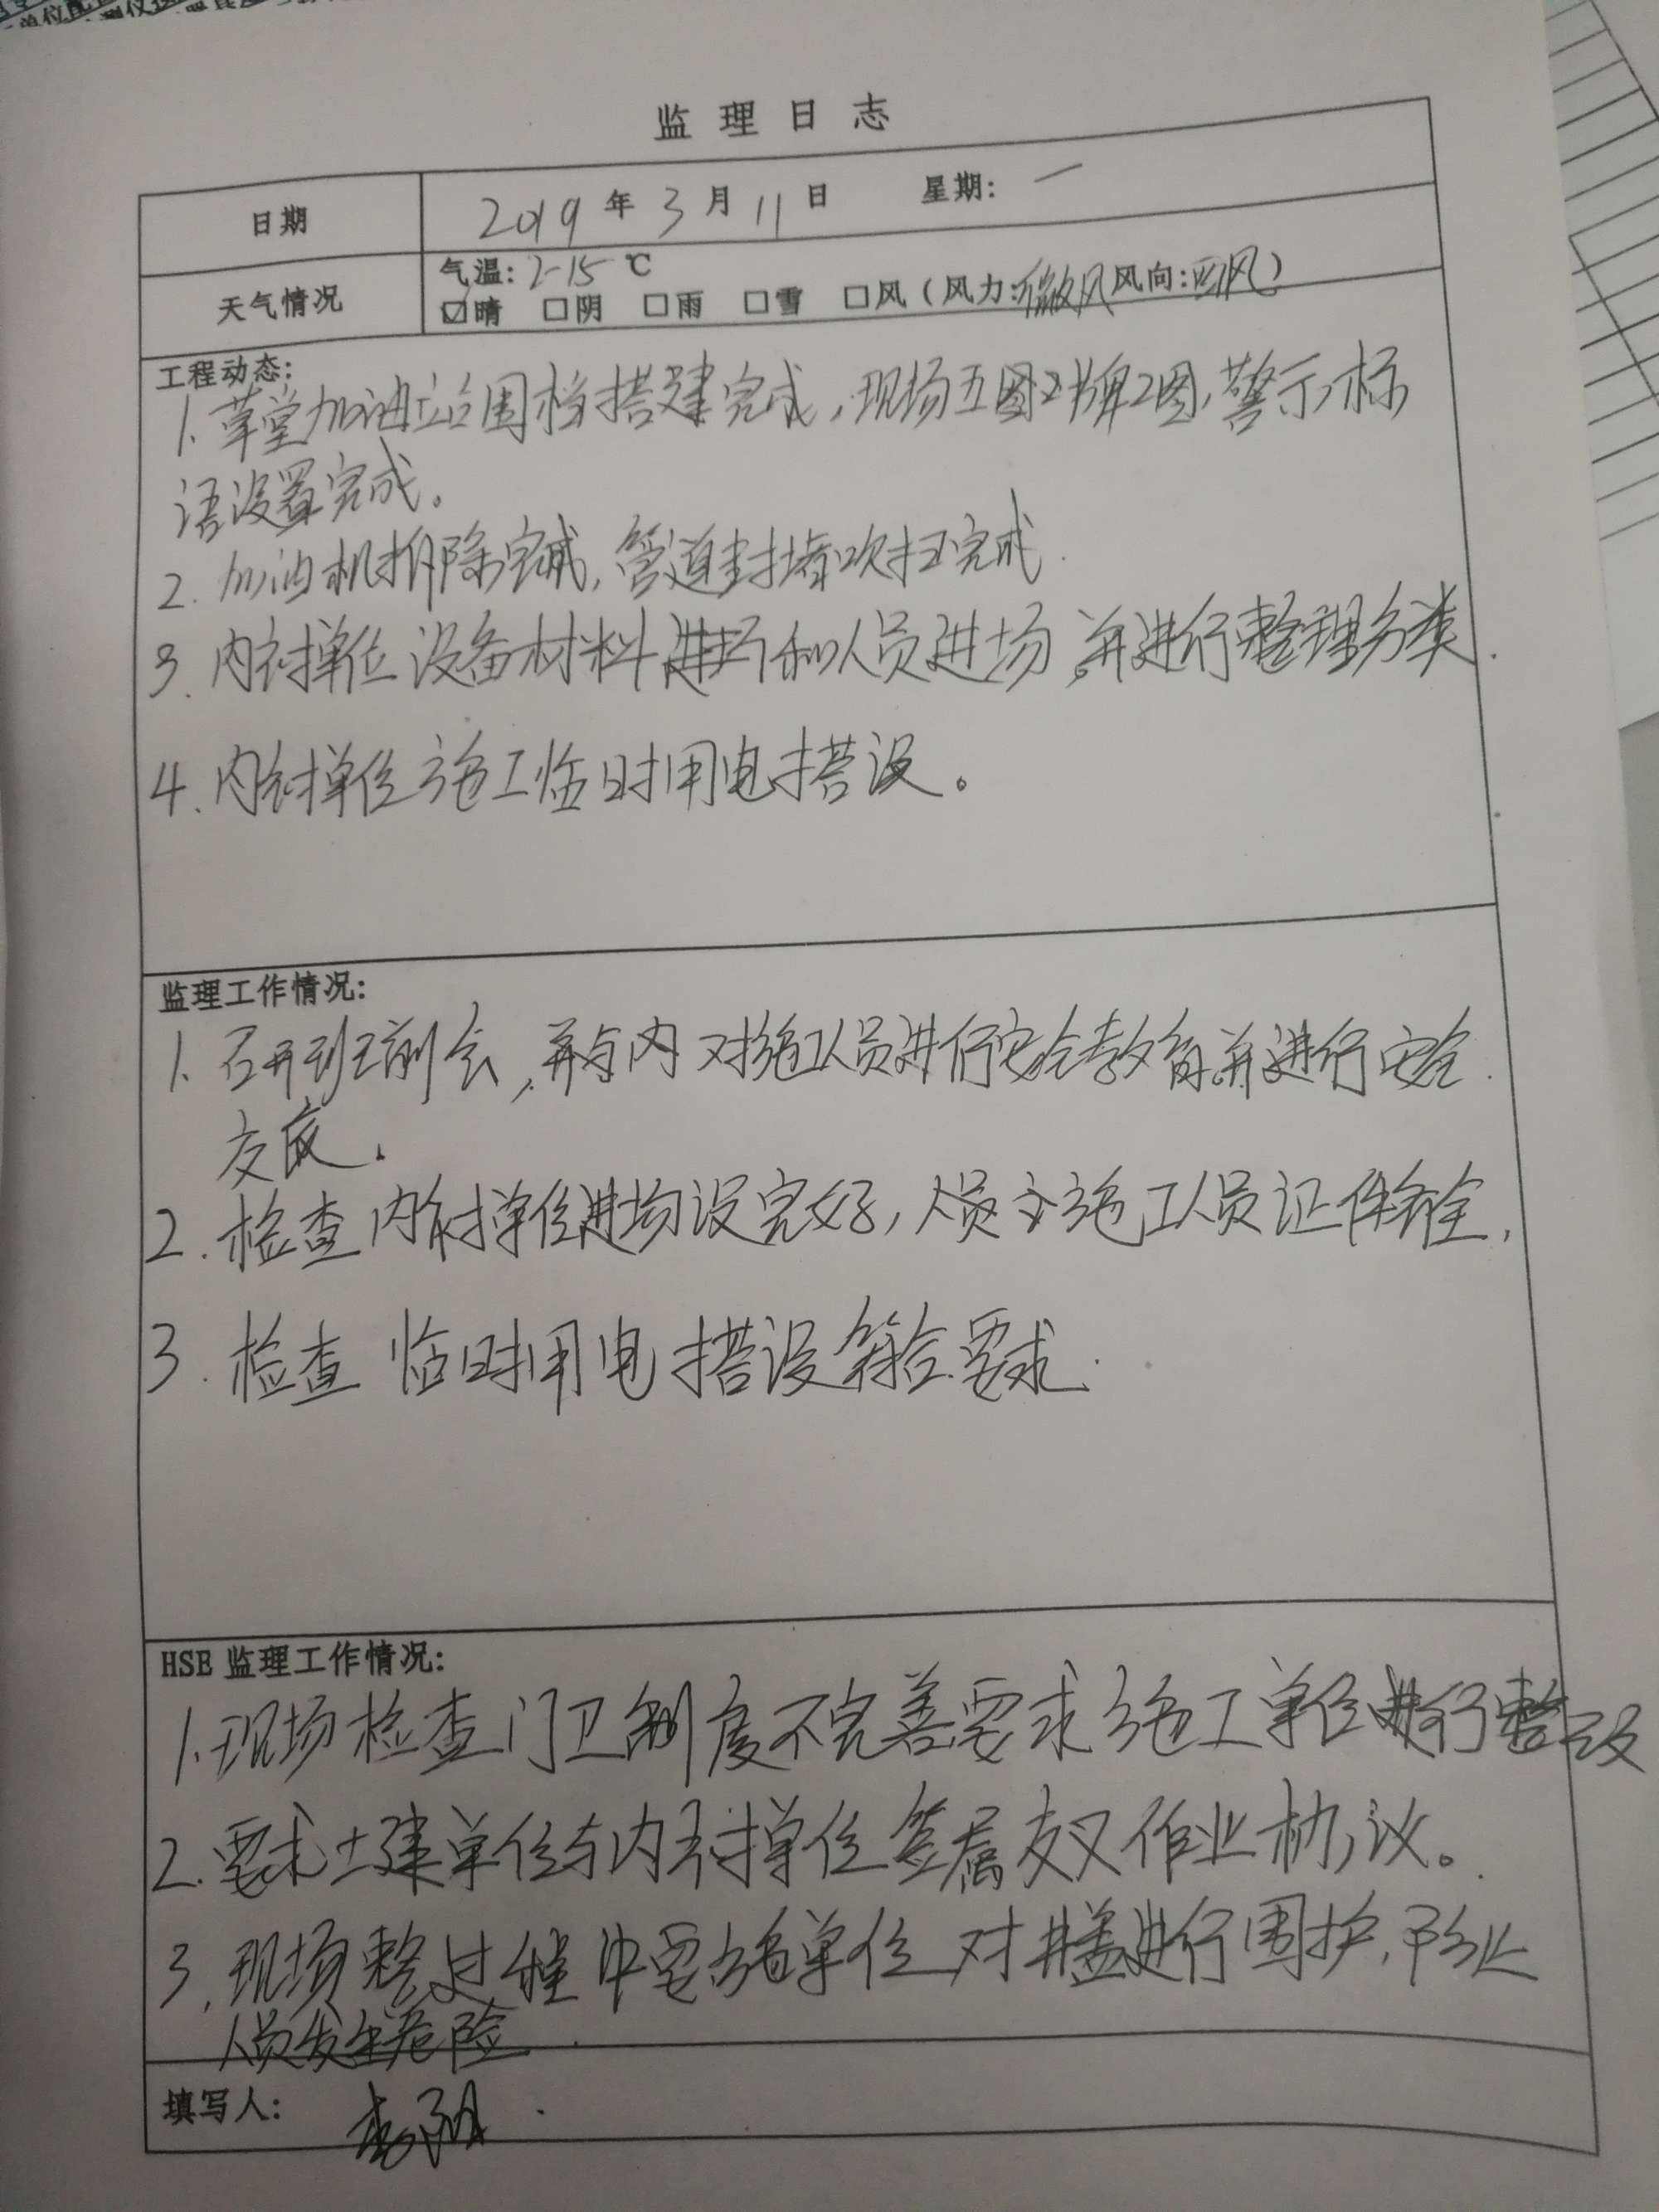 监理日志
日期 2019年3月11日 星期：一
天气情况 气温：2-15℃
☑晴 □阴 □雨 □雪 □风（风力：微风 风向：西风）
工程动态：
1.草堂加油站围档搭建完成，现场五图2牌2图，警示标
语设置完成。
2.加油机拆除完成，管道封堵吹扫完成.
3.内衬单位设备材料进场和人员进场，并进行整理分类.
4.内衬单位施工临时用电搭设。
监理工作情况：
1.召开班前会，并与内 对施工人员进行安全教育并进行安全
交底.
2.检查内衬单位进场设完好，人员 施工人员证件齐全，
3.检查临时用电搭设符合要求.
HSE 监理工作情况：
1.现场检查门卫制度不完善要求施工单位进行整改
2.要求土建单位与内衬单位签属交叉作业协议。
3.现场整过程中要 单位对井盖进行围护，防止
人员发生危险.
填写人：